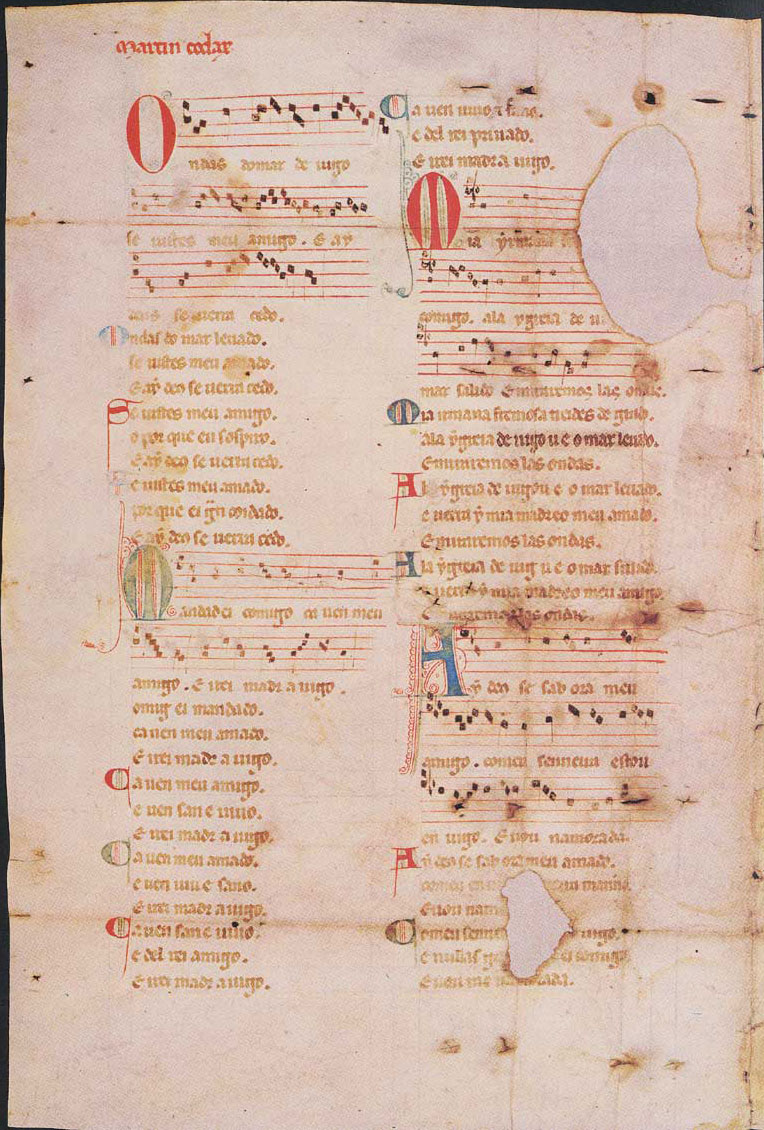 Martin codax
Ondas do mar de uigo
se uistes meu amigo. E ay
deus se uerra cedo.
Ondas do mar leuado.
se uistes meu amado.
E ay deo se uerra cedo.
Se uistes meu amigo.
o por que eu sospiro.
E ay deo se uerra cedo.
Se uistes meu amado.
por que ei gran coydado.
E ay deo se uerra cedo.
Mandad ei comigo ca uen meu
amigo. E irei madr a uigo.
comig ei mandado.
ca uen meu amado.
E irei madr a uigo.
Ca uen meu amigo.
e uen san e uiuo.
E irei madr a uigo.
Ca uen meu amado.
e uen uiu e sano.
E irei madr a uigo.
Ca uen san e uiuo.
e del rei amigo.
E irei madr a uigo.
Ca uen uiuo e sano.
e del rei priuado.
E irei madr a uigo.
Mia
comigo. ala ygreia de
mar salido E miraremos las ondas.
Mia irmana fremosa treides de grado.
ala ygreia de uigo u e o mar leuado.
E miraremos las ondas.
Ala ygreia de uigo u e o mar leuado.
e uerra y mia madre o meu amado.
E miraremos las ondas.
Ala ygreia de uig u e o mar salido.
e uerra y mia madre o meu amigo.
E miraremos las ondas.
Ay deo se sab ora meu
amigo. comeu senneira estou
en uigo. E uou namorada.
Ay deo se sab ora meu amado.
comeu en
E uou nam
Comeu senne uigo.
e nullas comigo.
E uou namorada.